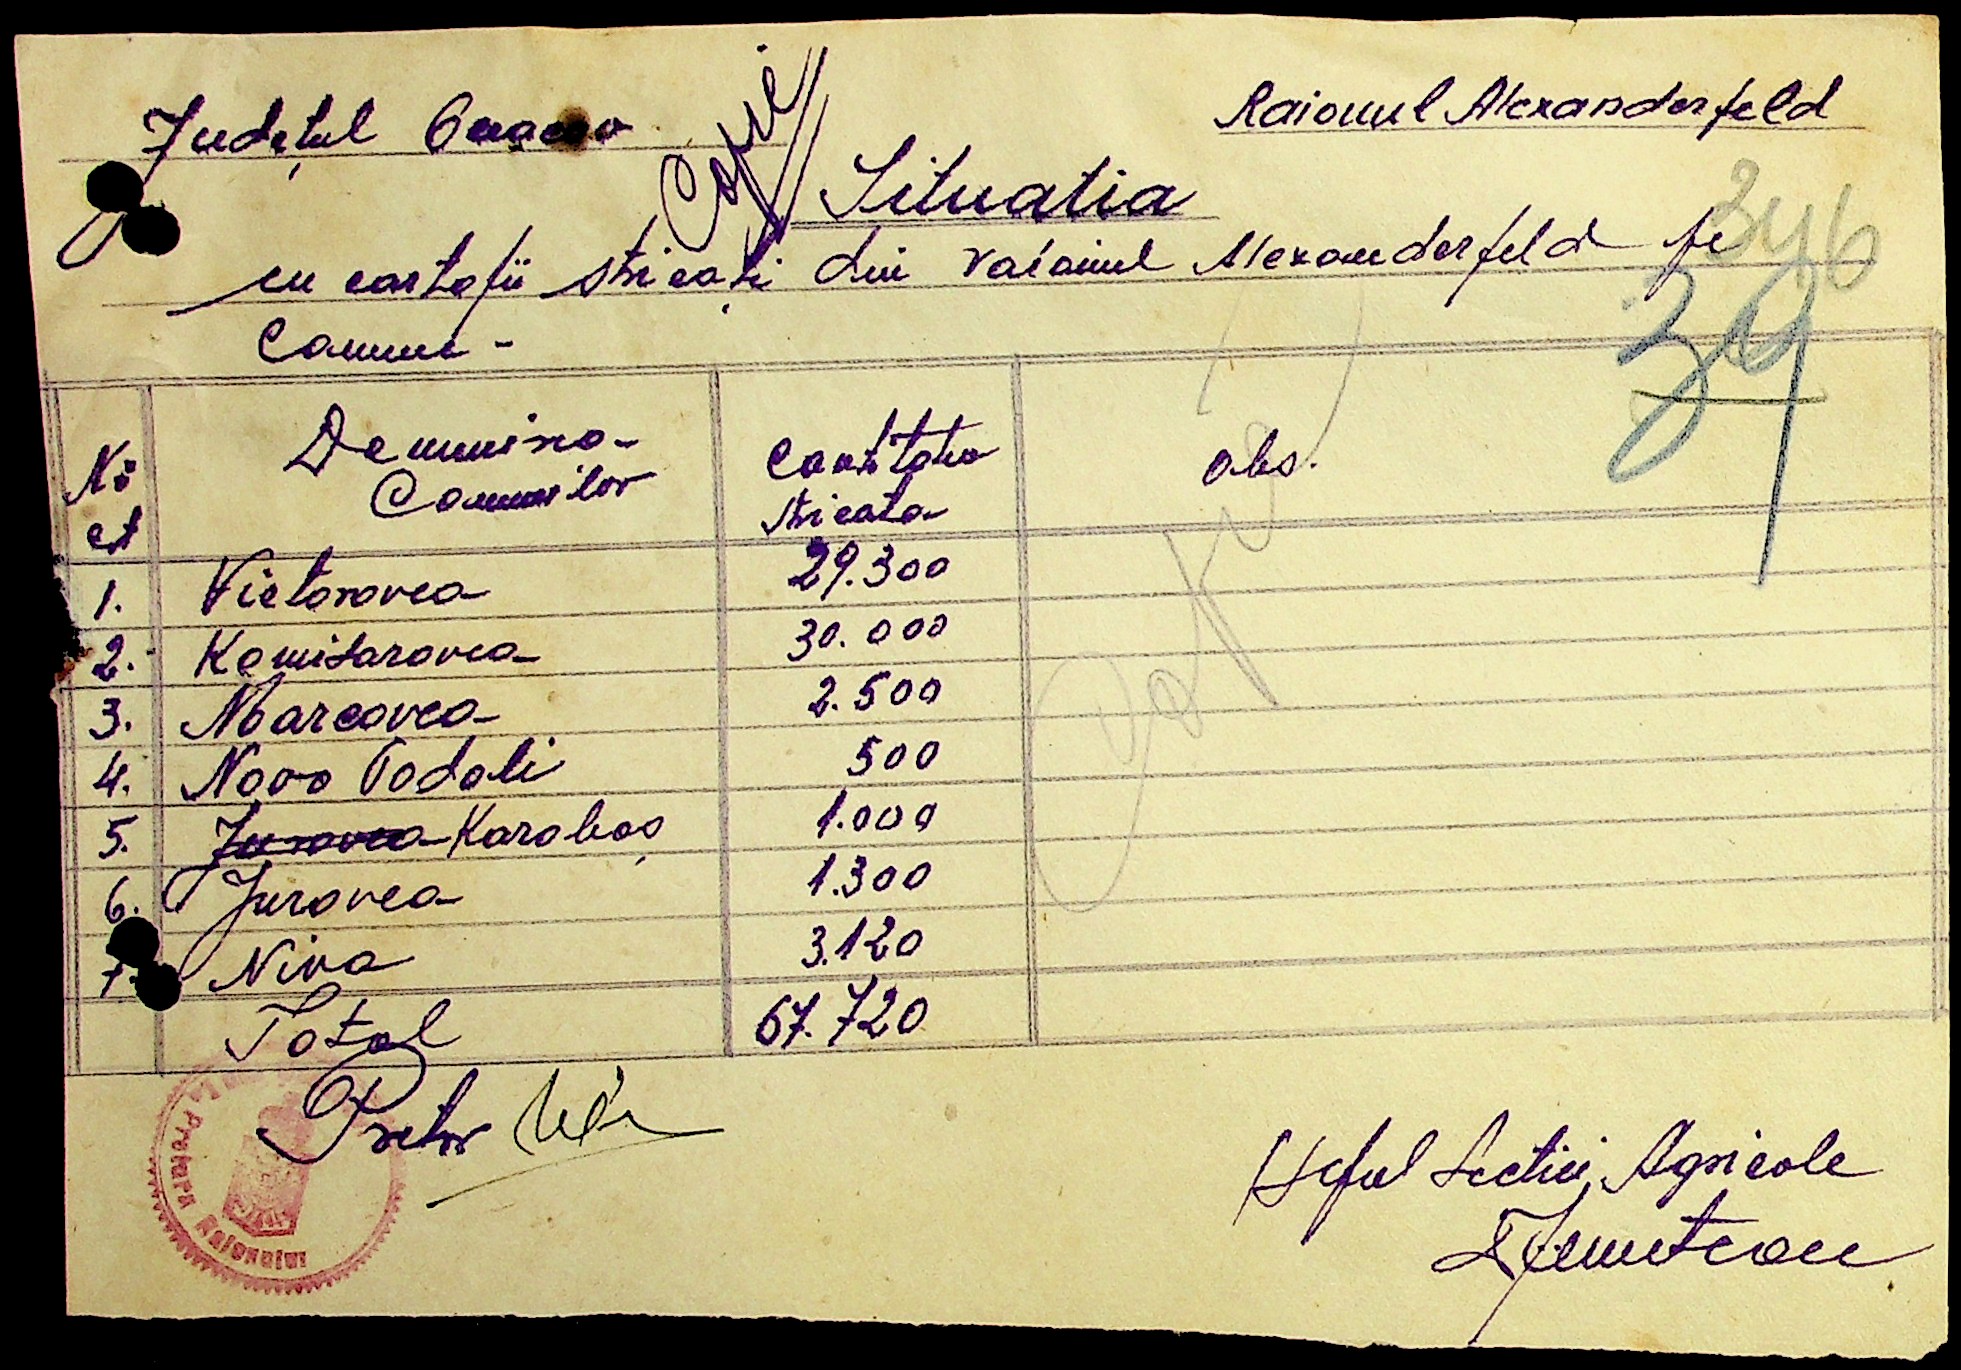 Județul Oceacov
Raionul Alexanderfeld
Copie
Situatia
346
cu cartofii stricați din raionul Alexanderfeld pe
39
Comune -
No ct
Denumirea Comunilor
Cantitatea stricata
Obs.
1. Victorovca 29.300
2. Komisarovca 30.000
3. Marcovca 2.500
4. Novo Podoli 500
5. Jurovca Karabaș 1.000
6. Jurovca 1.300
7. Niva 3.120
Total 67.720
Copie
Pretor
Pretura Raionului
Șeful Secției Agricole